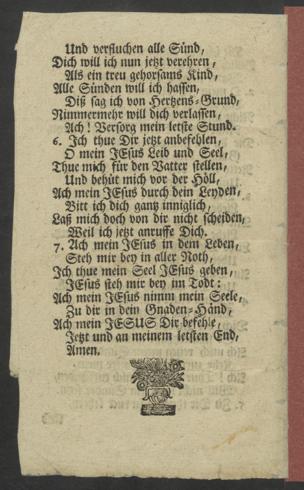 Und verfluchen alle Sünd,
Dich will ich nun jetzt verehren,
Als ein treu gehorsams Kind,
Alle Sünden will ich hassen,
Diß sag ich von Hertzens-Grund,
Nimmermehr will dich verlassen,
Ach! Versorg mein letste Stund.
6. Ich thue Dir jetzt anbefehlen,
O mein JEsus Leid und Seel,
Thue mich für den Vatter stellen,
Und behüt mich vor der Höll,
Ach mein JEsus durch dein Leyden,
Bitt ich dich gantz inniglich,
Laß mich doch von dir nicht scheiden,
Weil ich jetzt anruffe Dich.
7. Ach mein JEsus in dem Leben,
Steh mir bey in aller Noth,
Ich thue mein Seel JEsus geben,
JEsus steh mir bey im Todt:
Ach mein JEsus nimm mein Seele,
Zu dir in dein Gnaden-Händ,
Ach mein JESUS Dir befehle,
Jetzt und an meinem letsten End,
Amen.